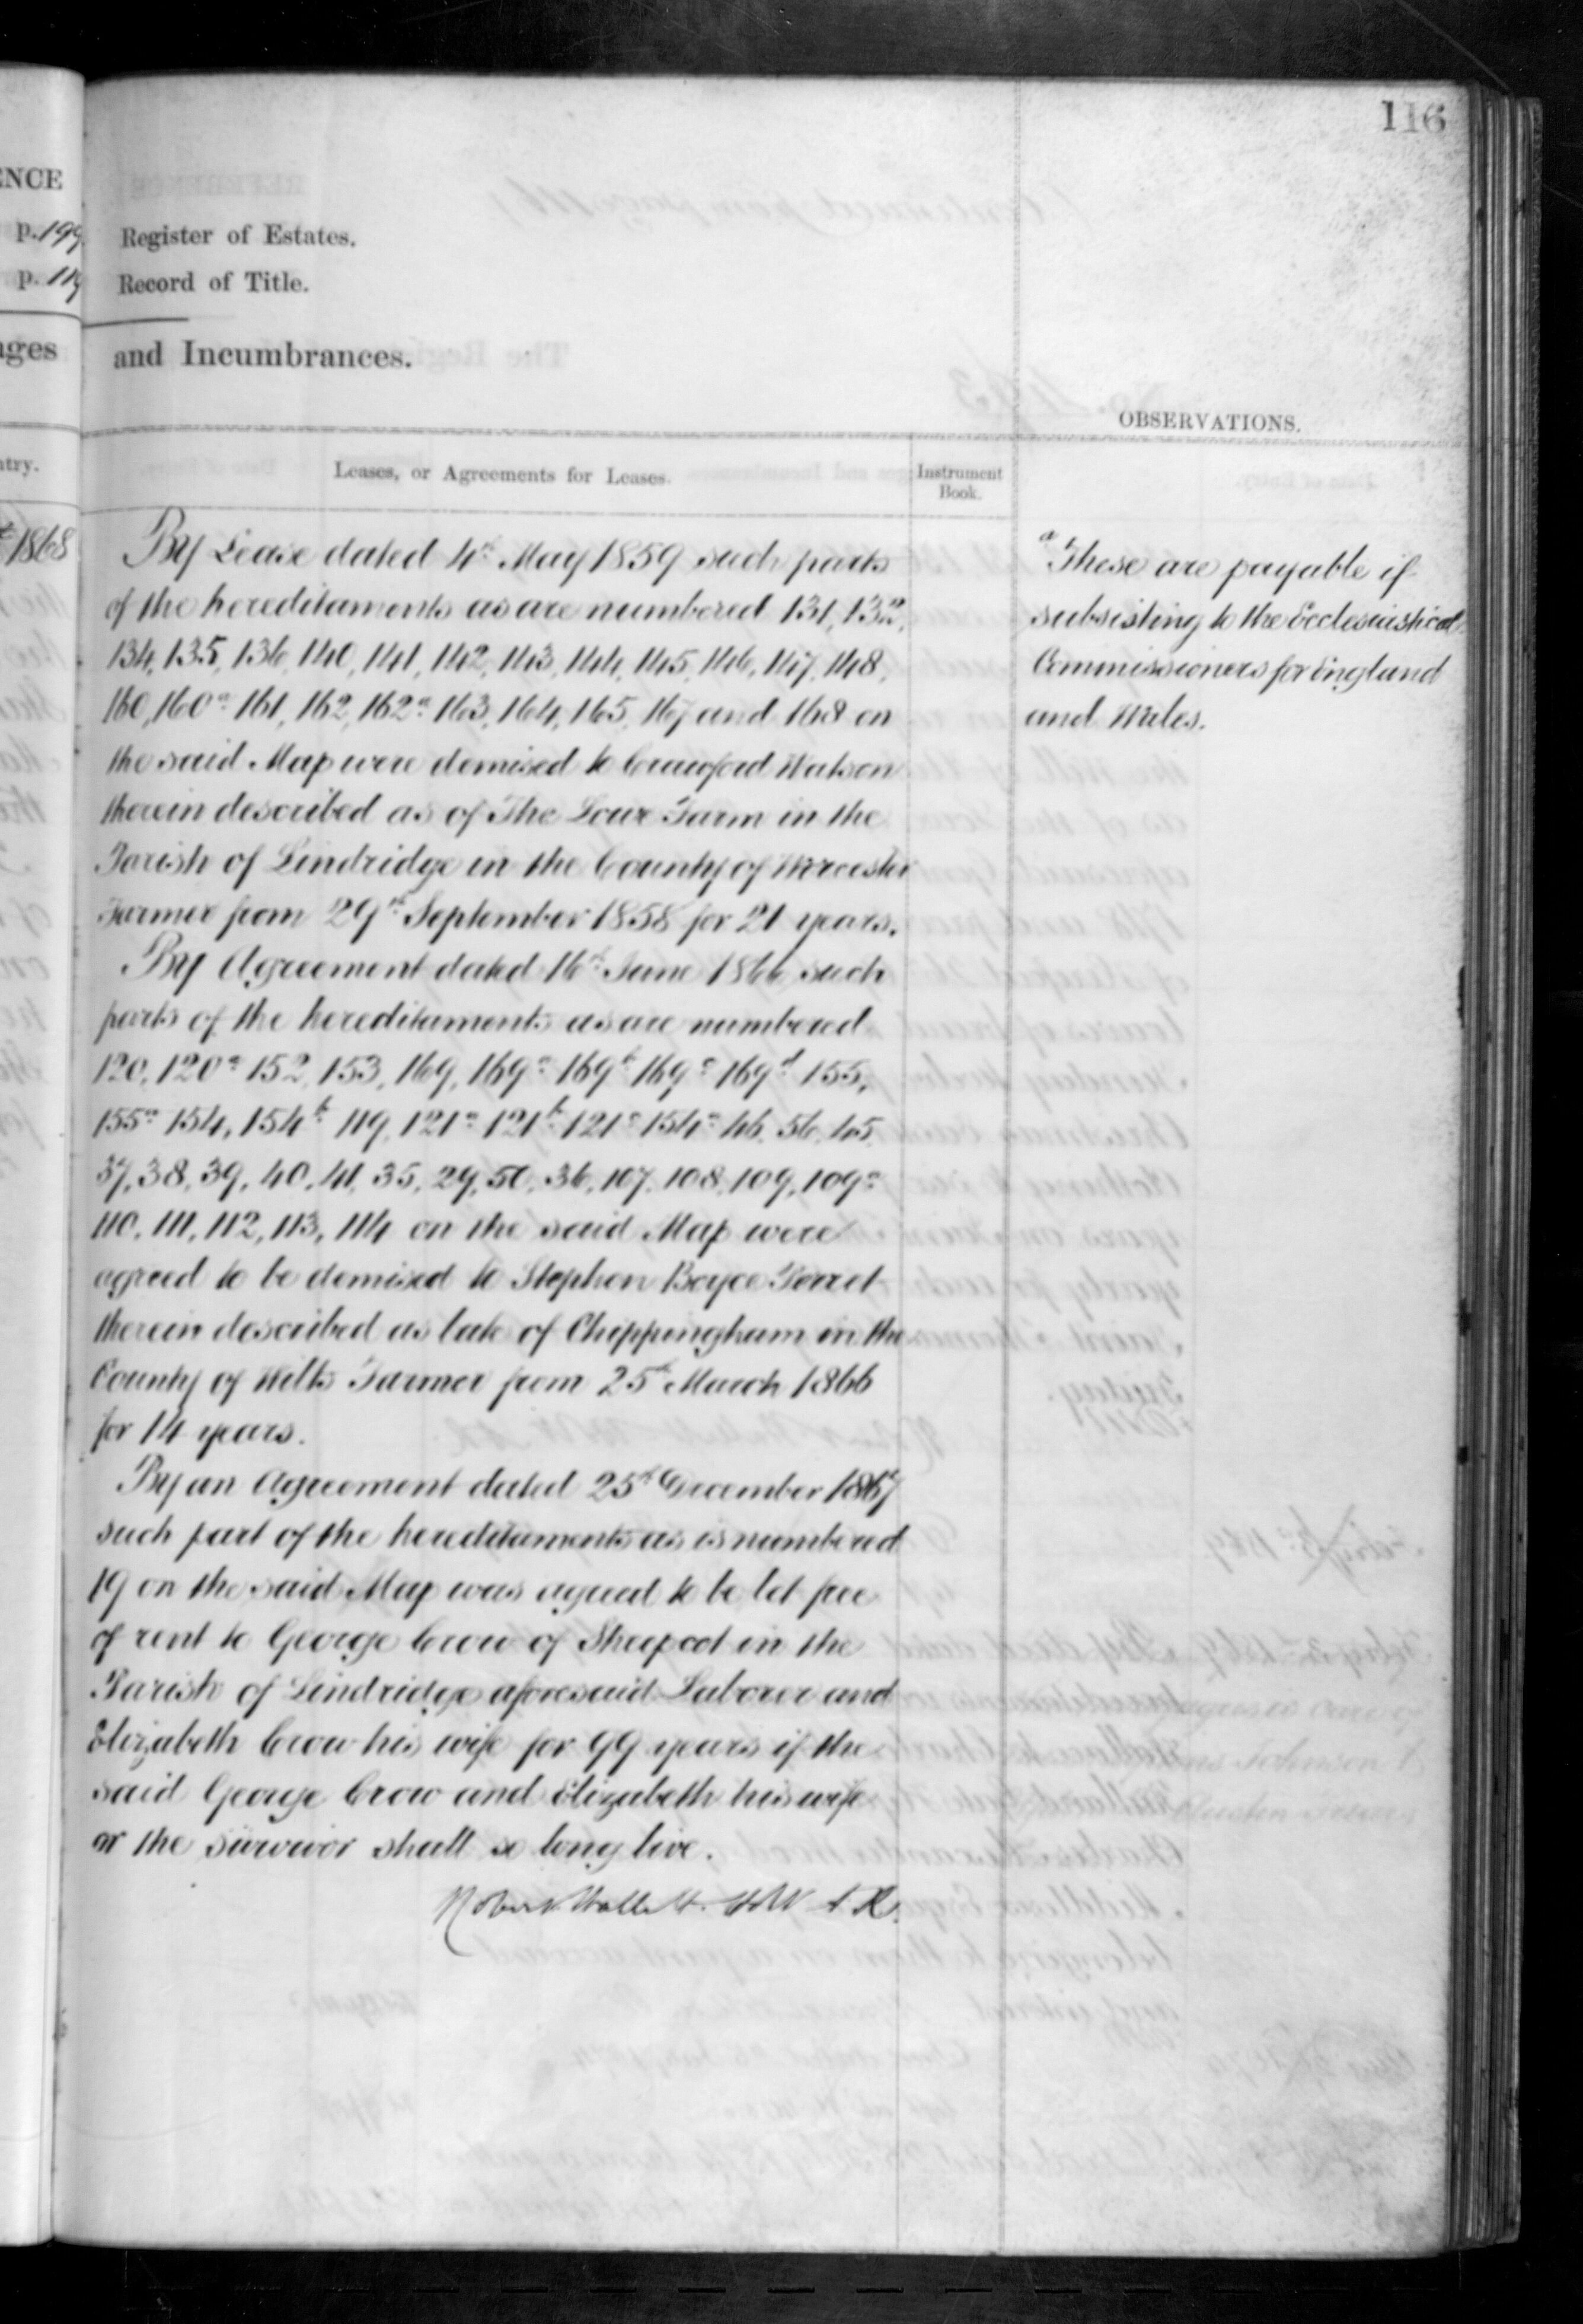 116
ENCE
p. 199 Register of Estates.
p. 119 Record of Title.
ages and Incumbrances.
OBSERVATIONS.
ntry. Leases, or Agreements for Leases. Instrument Book.
1868
By Lease dated 4th May 1859 such parts
of the hereditaments as are numbered 131, 132,
134, 135, 136, 140, 141, 142, 143, 144, 145, 146, 147, 148,
160, 160a 161, 162, 162a 163, 164, 165, 167 and 168 on
the said Map were demised to Crawford Watson
therein described as of The Lowe Farm in the
Parish of Lindridge in the County of Worcester
Farmer from 29th September 1858 for 21 years.
By Agreement dated 16th June 1866 such
parts of the hereditaments as are numbered
120, 120a 152, 153, 169, 169a 169b 169c 169d 155,
155a 154, 154b 119, 121a 121b 121c 154a 46, 56, 45,
37, 38, 39, 40, 41, 35, 29, 50, 36, 107, 108, 109, 109a
110, 111, 112, 113, 114 on the said Map were
agreed to be demised to Stephen Boyce
therein described as late of Chippingham in the
County of Wilts Farmer from 25th March 1866
for 14 years.
By an Agreement dated 25th December 1867
such part of the hereditaments as is numbered
19 on the said Map was agreed to be let free
of rent to George Crow of Sheepcot in the
Parish of Lindridge aforesaid Laborer and
Elizabeth Crow his wife for 99 years if the
said George Crow and Elizabeth his wife
or the survivor shall so long live.
Robert Hallett
a These are payable if
subsisting to the Ecclesiastical
Commissioners for England
and Wales.